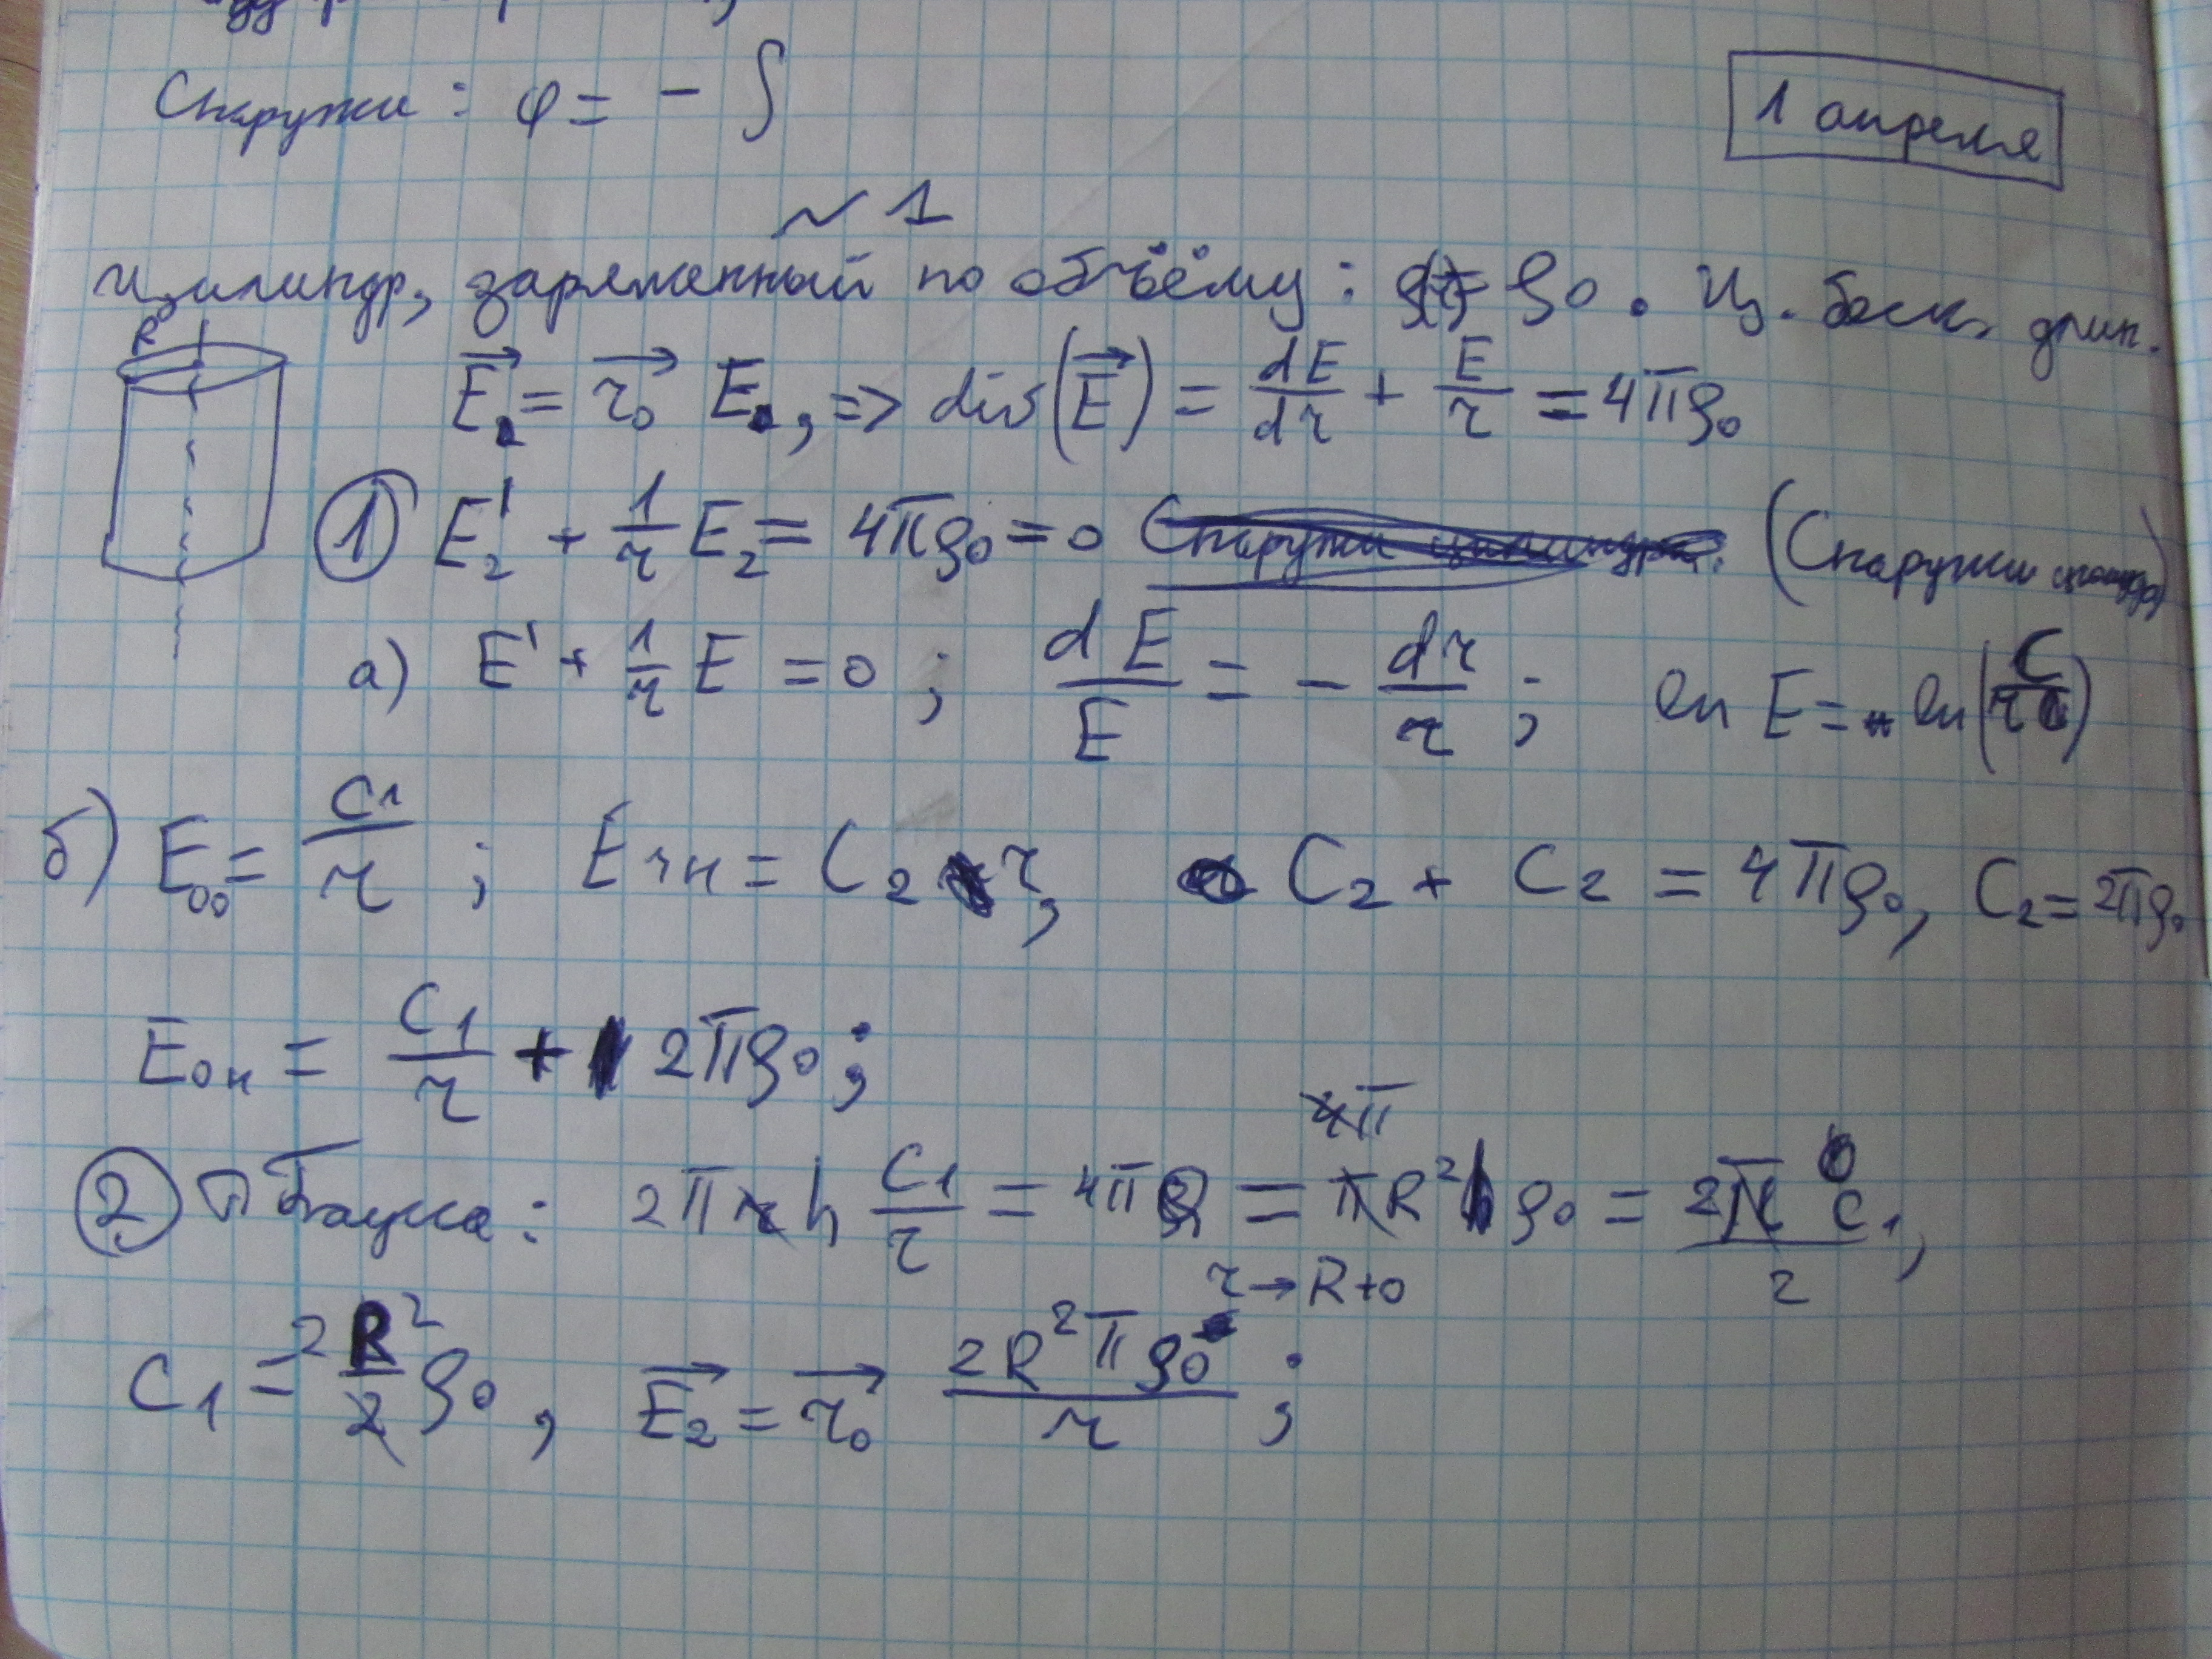 Снаружи: φ = - ∫
1 апреля
~ 1
Цилиндр, заряженный по объёму: ρ0. Ц. беск. длин.
R
E⃗2 = r⃗0 E2, => div(E⃗) = dE/dr + E/r = 4πρ0
① E2' + 1/r E2 = 4πρ0 = 0 (Снаружи цилиндра)
а) E' + 1/r E = 0; dE/E = - dr/r; ln E = ln(C/r)
б) E00 = C1/r; Eчн = C2 r, C2 + C2 = 4πρ0, C2 = 2πρ0
Eон = C1/r + 2πρ0;
4π
② П Гаусса: 2πr h C1/r = 4πQ = πR² h ρ0 = 2π C1/2,
r → R+0
C1 = 2 R²/2 ρ0, E⃗2 = r⃗0 2R²πρ0/r;